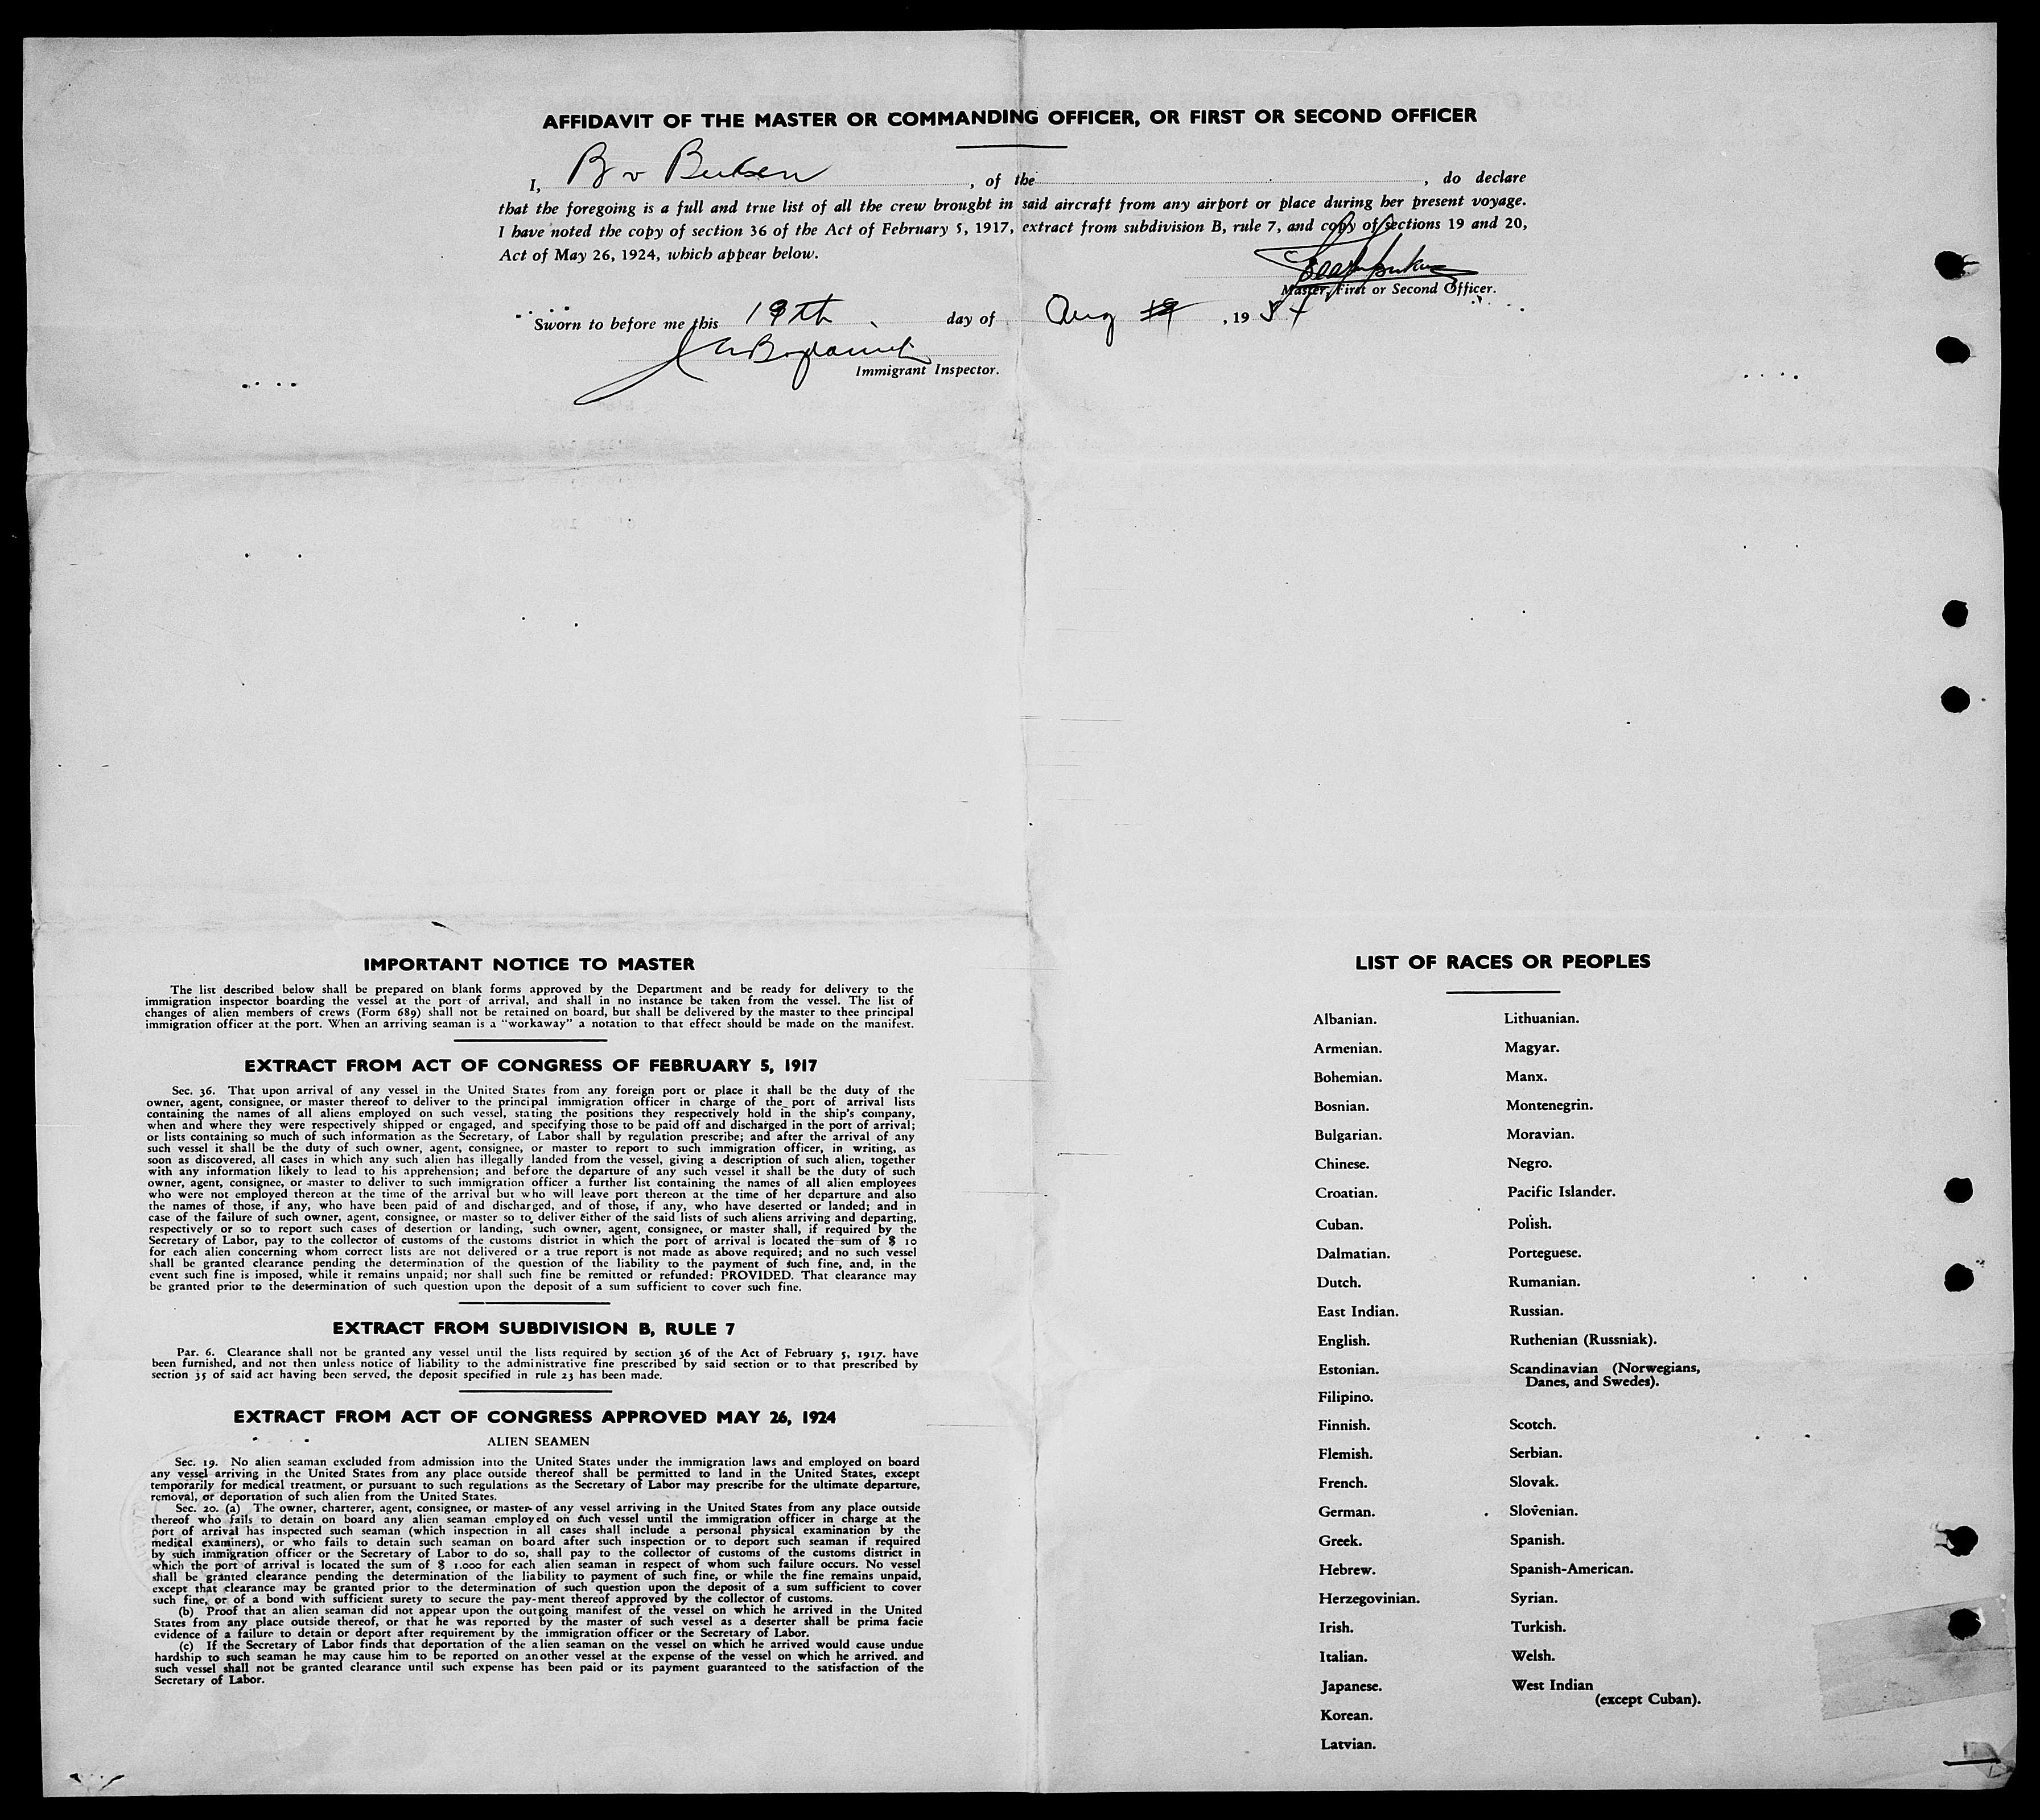 AFFIDAVIT OF THE MASTER OR COMMANDING OFFICER, OR FIRST OR SECOND OFFICER
I, B v Beuken, of the, do declare
that the foregoing is a full and true list of all the crew brought in said aircraft from any airport or place during her present voyage.
I have noted the copy of section 36 of the Act of February 5, 1917, extract from subdivision B, rule 7, and copy of sections 19 and 20,
Act of May 26, 1924, which appear below.
Master, First or Second Officer.
Sworn to before me this 19th day of Aug 19, 1954
Immigrant Inspector.
IMPORTANT NOTICE TO MASTER
The list described below shall be prepared on blank forms approved by the Department and be ready for delivery to the
immigration inspector boarding the vessel at the port of arrival, and shall in no instance be taken from the vessel. The list of
changes of alien members of crews (Form 689) shall not be retained on board, but shall be delivered by the master to thee principal
immigration officer at the port. When an arriving seaman is a "workaway" a notation to that effect should be made on the manifest.
EXTRACT FROM ACT OF CONGRESS OF FEBRUARY 5, 1917
Sec. 36. That upon arrival of any vessel in the United States from any foreign port or place it shall be the duty of the
owner, agent, consignee, or master thereof to deliver to the principal immigration officer in charge of the port of arrival lists
containing the names of all aliens employed on such vessel, stating the positions they respectively hold in the ship's company,
when and where they were respectively shipped or engaged, and specifying those to be paid off and discharged in the port of arrival;
or lists containing so much of such information as the Secretary, of Labor shall by regulation prescribe; and after the arrival of any
such vessel it shall be the duty of such owner, agent, consignee, or master to report to such immigration officer, in writing, as
soon as discovered, all cases in which any such alien has illegally landed from the vessel, giving a dscription of such alien, together
with any information likely to lead to his apprehension; and before the departure of any such vessel it shall be the duty of such
owner, agent, consignee, or master to deliver to such immigration officer a further list containing the names of all alien employees
who were not employed thereon at the time of the arrival but who will leave port thereon at the time of her departure and also
the names of those, if any, who have been paid of and discharged, and of those, if any, who have deserted or landed; and in
case of the failure of such owner, agent, consignee, or master so to deliver either of the said lists of such aliens arriving and departing,
respectively or so to report such cases of desertion or landing, such owner, agent, consignee, or master shall, if required by the
Secretary of Labor, pay to the collector of customs of the customs district in which the port of arrival is located the sum of $ 10
for each alien concerning whom correct lists are not delivered or a true report is not made as above required; and no such vessel
shall be granted clearance pending the determination of the question of the liability to the payment of such fine, and, in the
event such fine is imposed, while it remains unpaid; nor shall such fine be remitted or refunded: PROVIDED. That clearance may
be granted prior to the determination of such question upon the deposit of a sum sufficient to cover such fine.
EXTRACT FROM SUBDIVISION B, RULE 7
Par. 6. Clearance shall not be granted any vessel until the lists required by section 36 of the Act of February 5, 1917. have
been furnished, and not then unless notice of liability to the administrative fine prescribed by said section or to that prescribed by
section 35 of said act having been served, the deposit specified in rule 23 has been made.
EXTRACT FROM ACT OF CONGRESS APPROVED MAY 26, 1924
ALIEN SEAMEN
Sec. 19. No alien seaman excluded from admission into the United States under the immigration laws and employed on board
any vessel arriving in the United States from any place outside thereof shall be permitted to land in the United States, except
temporarily for medical treatment, or pursuant to such regulations as the Secretary of Labor may prescribe for the ultimate departure,
removal, or deportation of such alien from the United States.
Sec. 20. (a) The owner, charterer, agent, consignee, or master of any vessel arriving in the United States from any place outside
thereof who fails to detain on board any alien seaman employed on such vessel until the immigration officer in charge at the
port of arrival has inspected such seaman (which inspection in all cases shall include a personal physical examination by the
medical examiners), or who fails to detain such seaman on board after such inspection or to deport such seaman if required
by such immigration officer or the Secretary of Labor to do so, shall pay to the collector of customs of the customs district in
which the port of arrival is located the sum of $ 1.000 for each alien seaman in respect of whom such failure occurs. No vessel
shall be granted clearance pending the determination of the liability to payment of such fine, or while the fine remains unpaid,
except that clearance may be granted prior to the determination of such question upon the deposit of a sum sufficient to cover
such fine, or of a bond with sufficient surety to secure the pay-ment thereof approved by the collector of customs.
(b) Proof that an alien seaman did not appear upon the outgoing manifest of the vessel on which he arrived in the United
States from any place outside thereof, or that he was reported by the master of such vessel as a deserter shall be prima facie
evidence of a failure to detain or deport after requirement by the immigration officer or the Secretary of Labor.
(c) If the Secretary of Labor finds that deportation of the alien seaman on the vessel on which he arrived would cause undue
hardship to such seaman he may cause him to be reported on another vessel at the expense of the vessel on which he arrived. and
such vessel shall not be granted clearance until such expense has been paid or its payment guaranteed to the satisfaction of the
Secretary of Labor.
LIST OF RACES OR PEOPLES
Albanian.
Armenian.
Bohemian.
Bosnian.
Bulgarian.
Chinese.
Croatian.
Cuban.
Dalmatian.
Dutch.
East Indian.
English.
Estonian.
Filipino.
Finnish.
Flemish.
French.
German.
Greek.
Hebrew.
Herzegovinian.
Irish.
Italian.
Japanese.
Korean.
Latvian.
Lithuanian.
Magyar.
Manx.
Montenegrin.
Moravian.
Negro.
Pacific Islander.
Polish.
Porteguese.
Rumanian.
Russian.
Ruthenian (Russniak).
Scandinavian (Norwegians,
Danes, and Swedes).
Scotch.
Serbian.
Slovak.
Slovenian.
Spanish.
Spanish-American.
Syrian.
Turkish.
Welsh.
West Indian
(except Cuban).